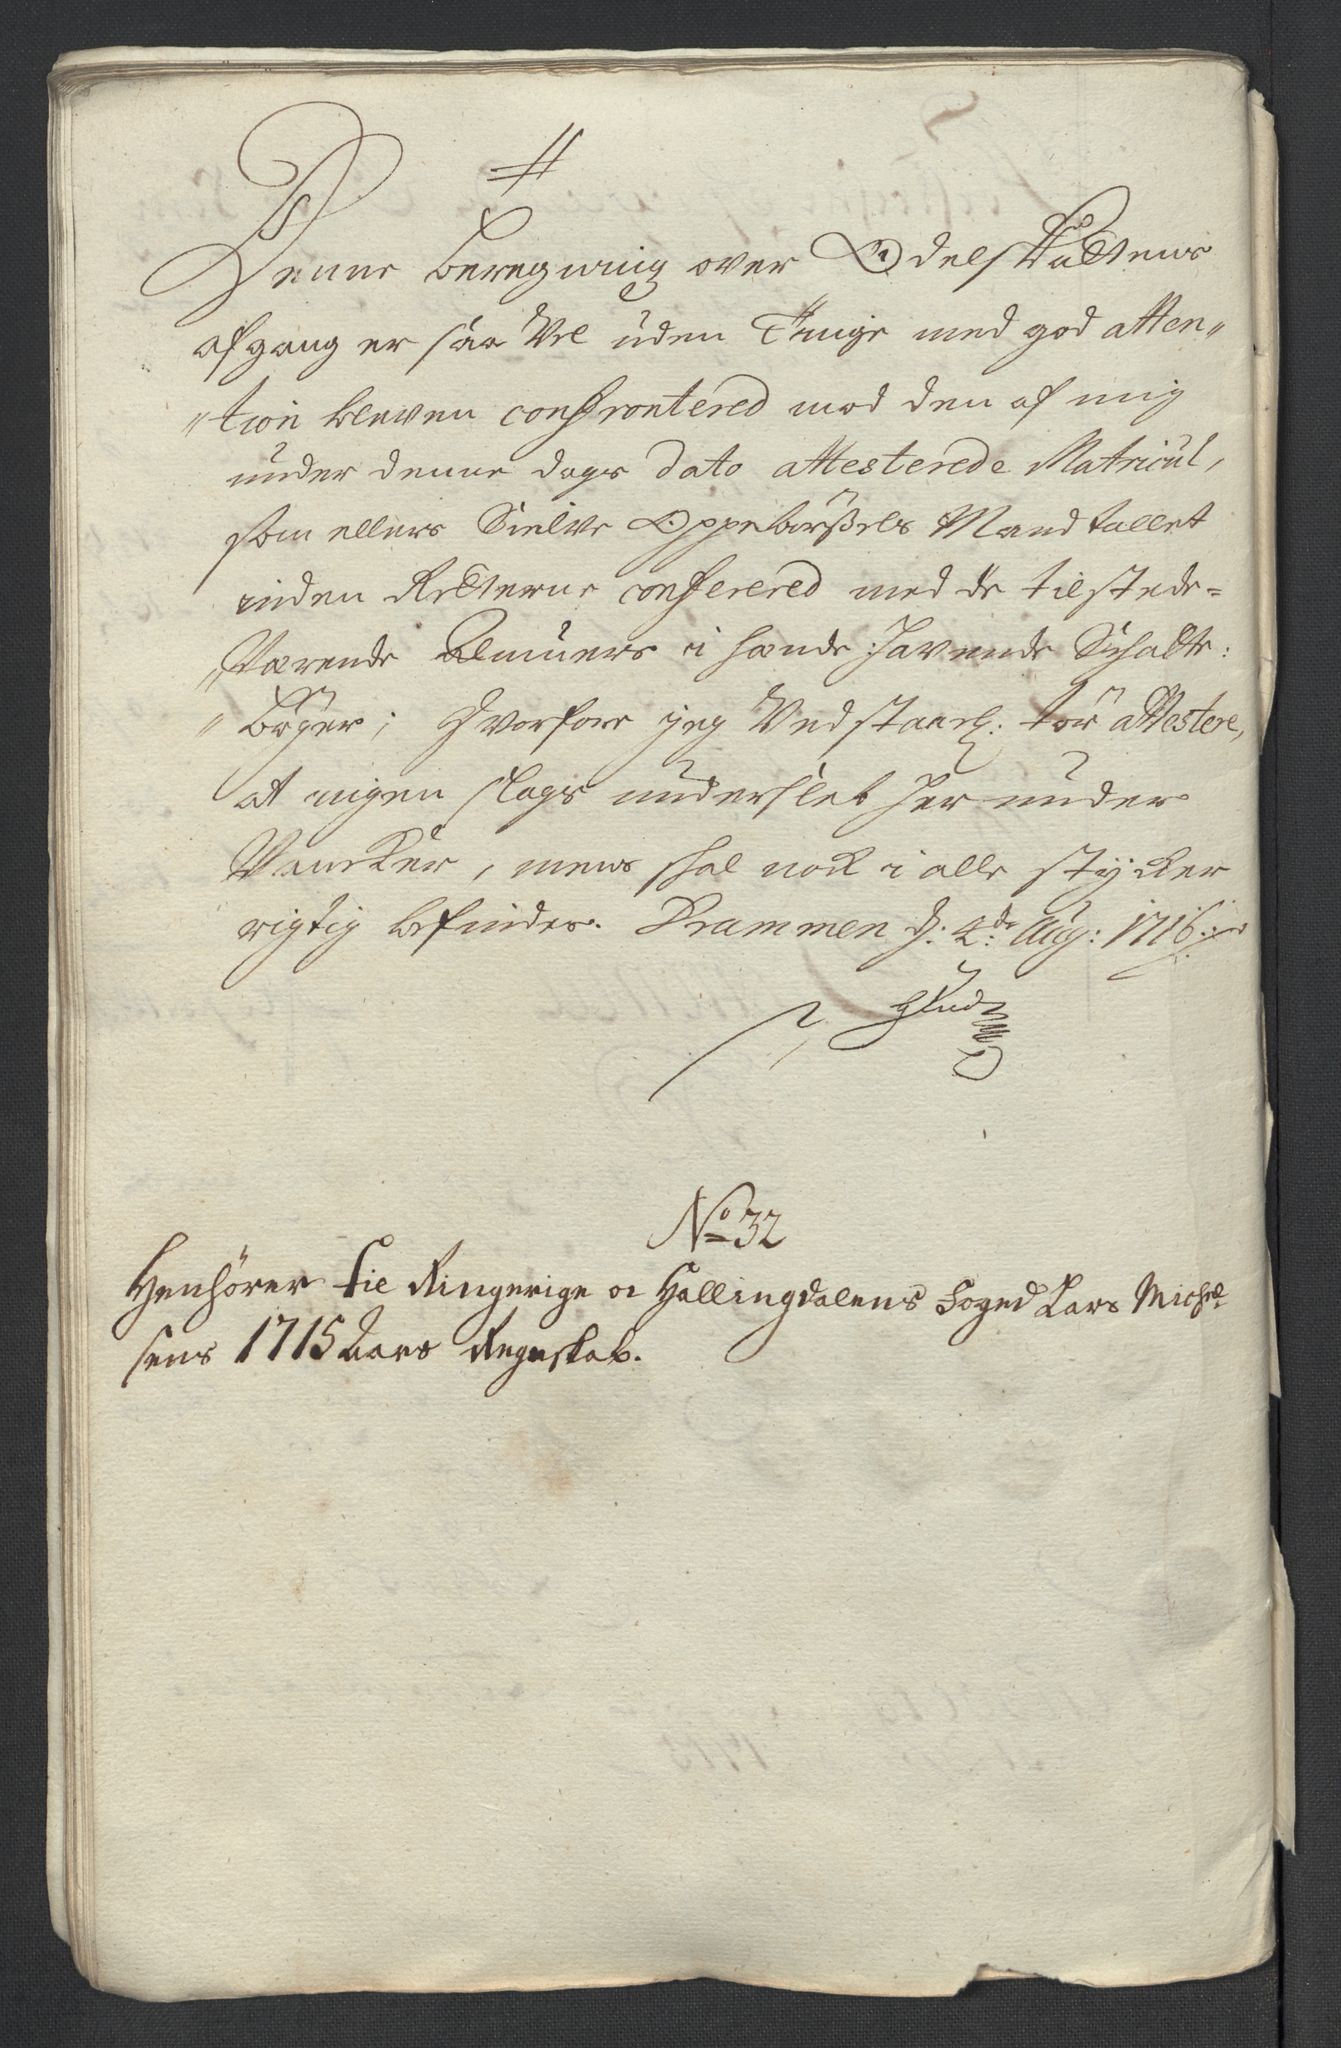 Denne beregning over Odelskattens
afgang er saa Vel uden Tinge med god atten„
„tion bleven confrontered mod den af mig
under denne dags dato attesterede Matricul,
som ellers Sielve Oppebørßels Mandtallet
inden Retterne conferered med de tilstede=
„Værende Almuers i hænde havende Schatte:
„bøger; hvorfore jeg Vedstaael: tør attestere,
at ingen slags underslet her under
Vancker, mens skal nok i alle stycker
rigtig befindes. Brammen d: 4de: Aug: 1716.
No 32
Henhører til Ringerige oc Hallingdalens Foged Lars Michel
sens 1715 Aars Regnskab.